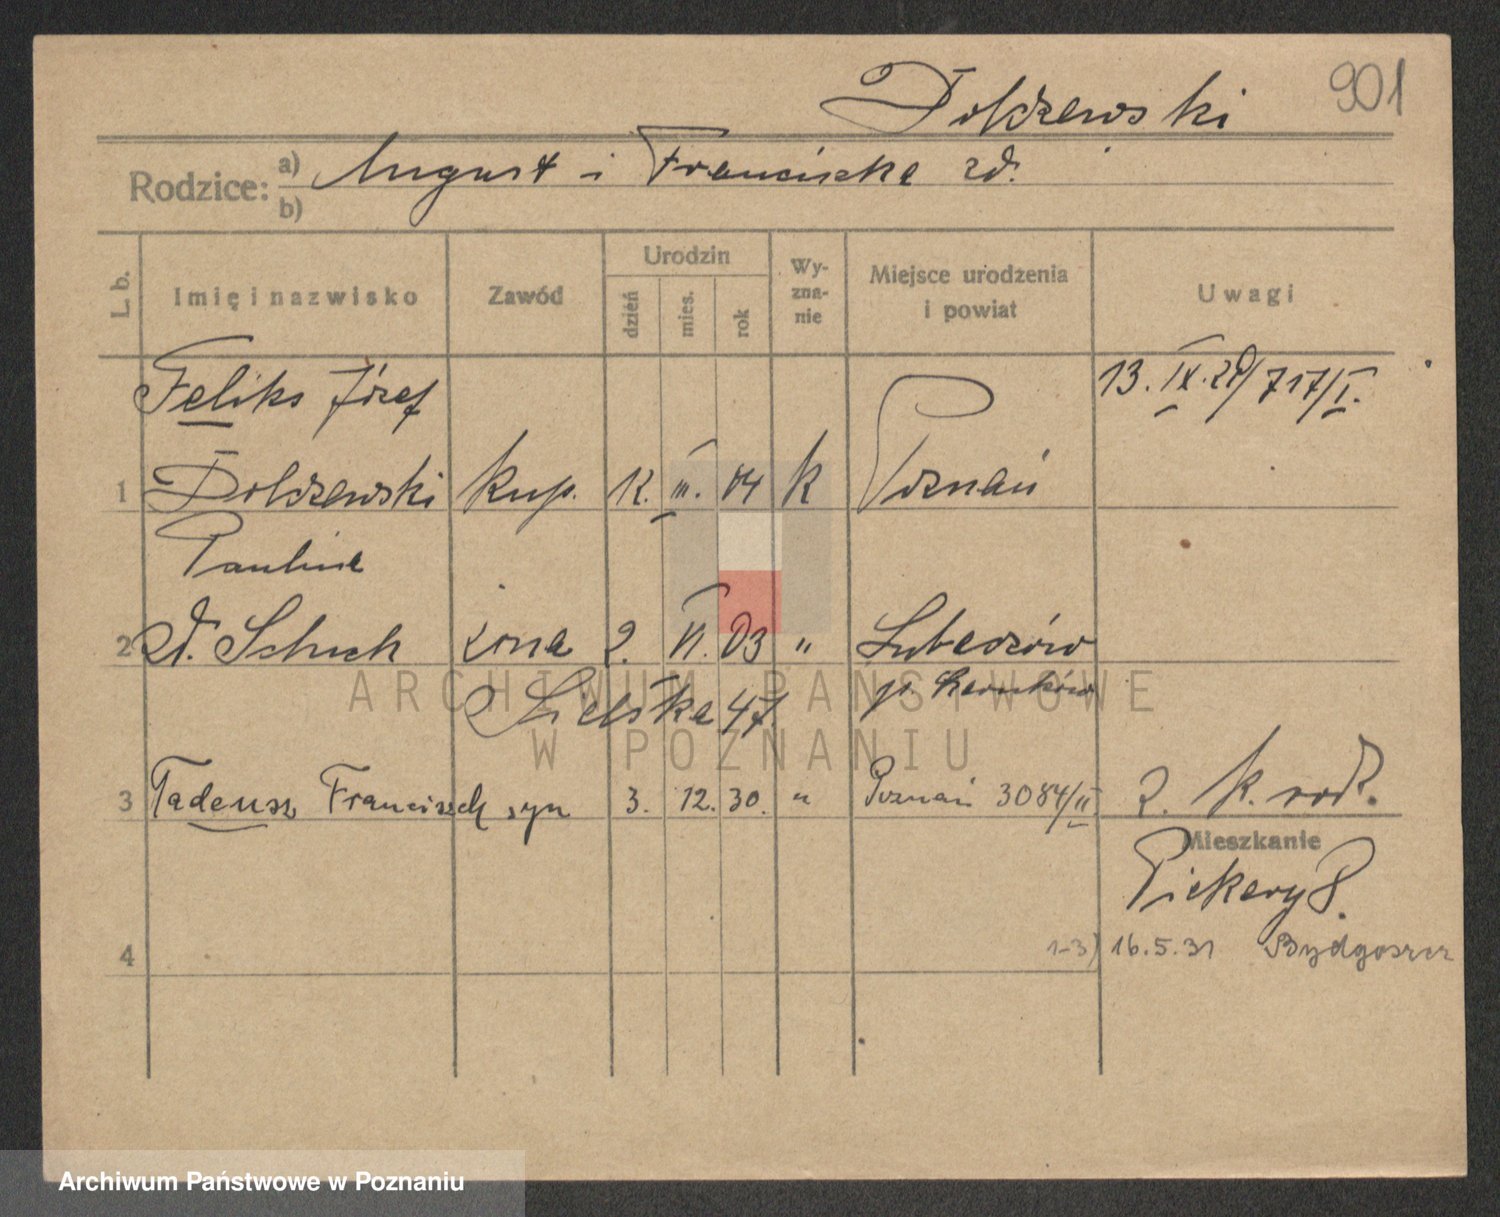 901
Dolczewski
Rodzice: a) August i Franciszka zd.
b)
L. b. Imię i nazwisko Zawód Urodzin dzień mies. rok Wyznanie Miejsce urodzenia i powiat Uwagi
Feliks Józef 13. IX. 29/717/I.
1 Dolczewski kup. 12. III. 04 k Poznań
Paulina
2 d. Schuch żona 2. VI. 03 " Lubaszów
Sielska 47. p.
3 Tadeusz Franciszek syn 3. 12. 30. " Poznań 3084/II. 2. k. rodz.
Mieszkanie
Piekary 8.
4 1-3) 16.5.31 Bydgoszcz
ARCHIWUM PAŃSTWOWE
W POZNANIU
Archiwum Państwowe w Poznaniu